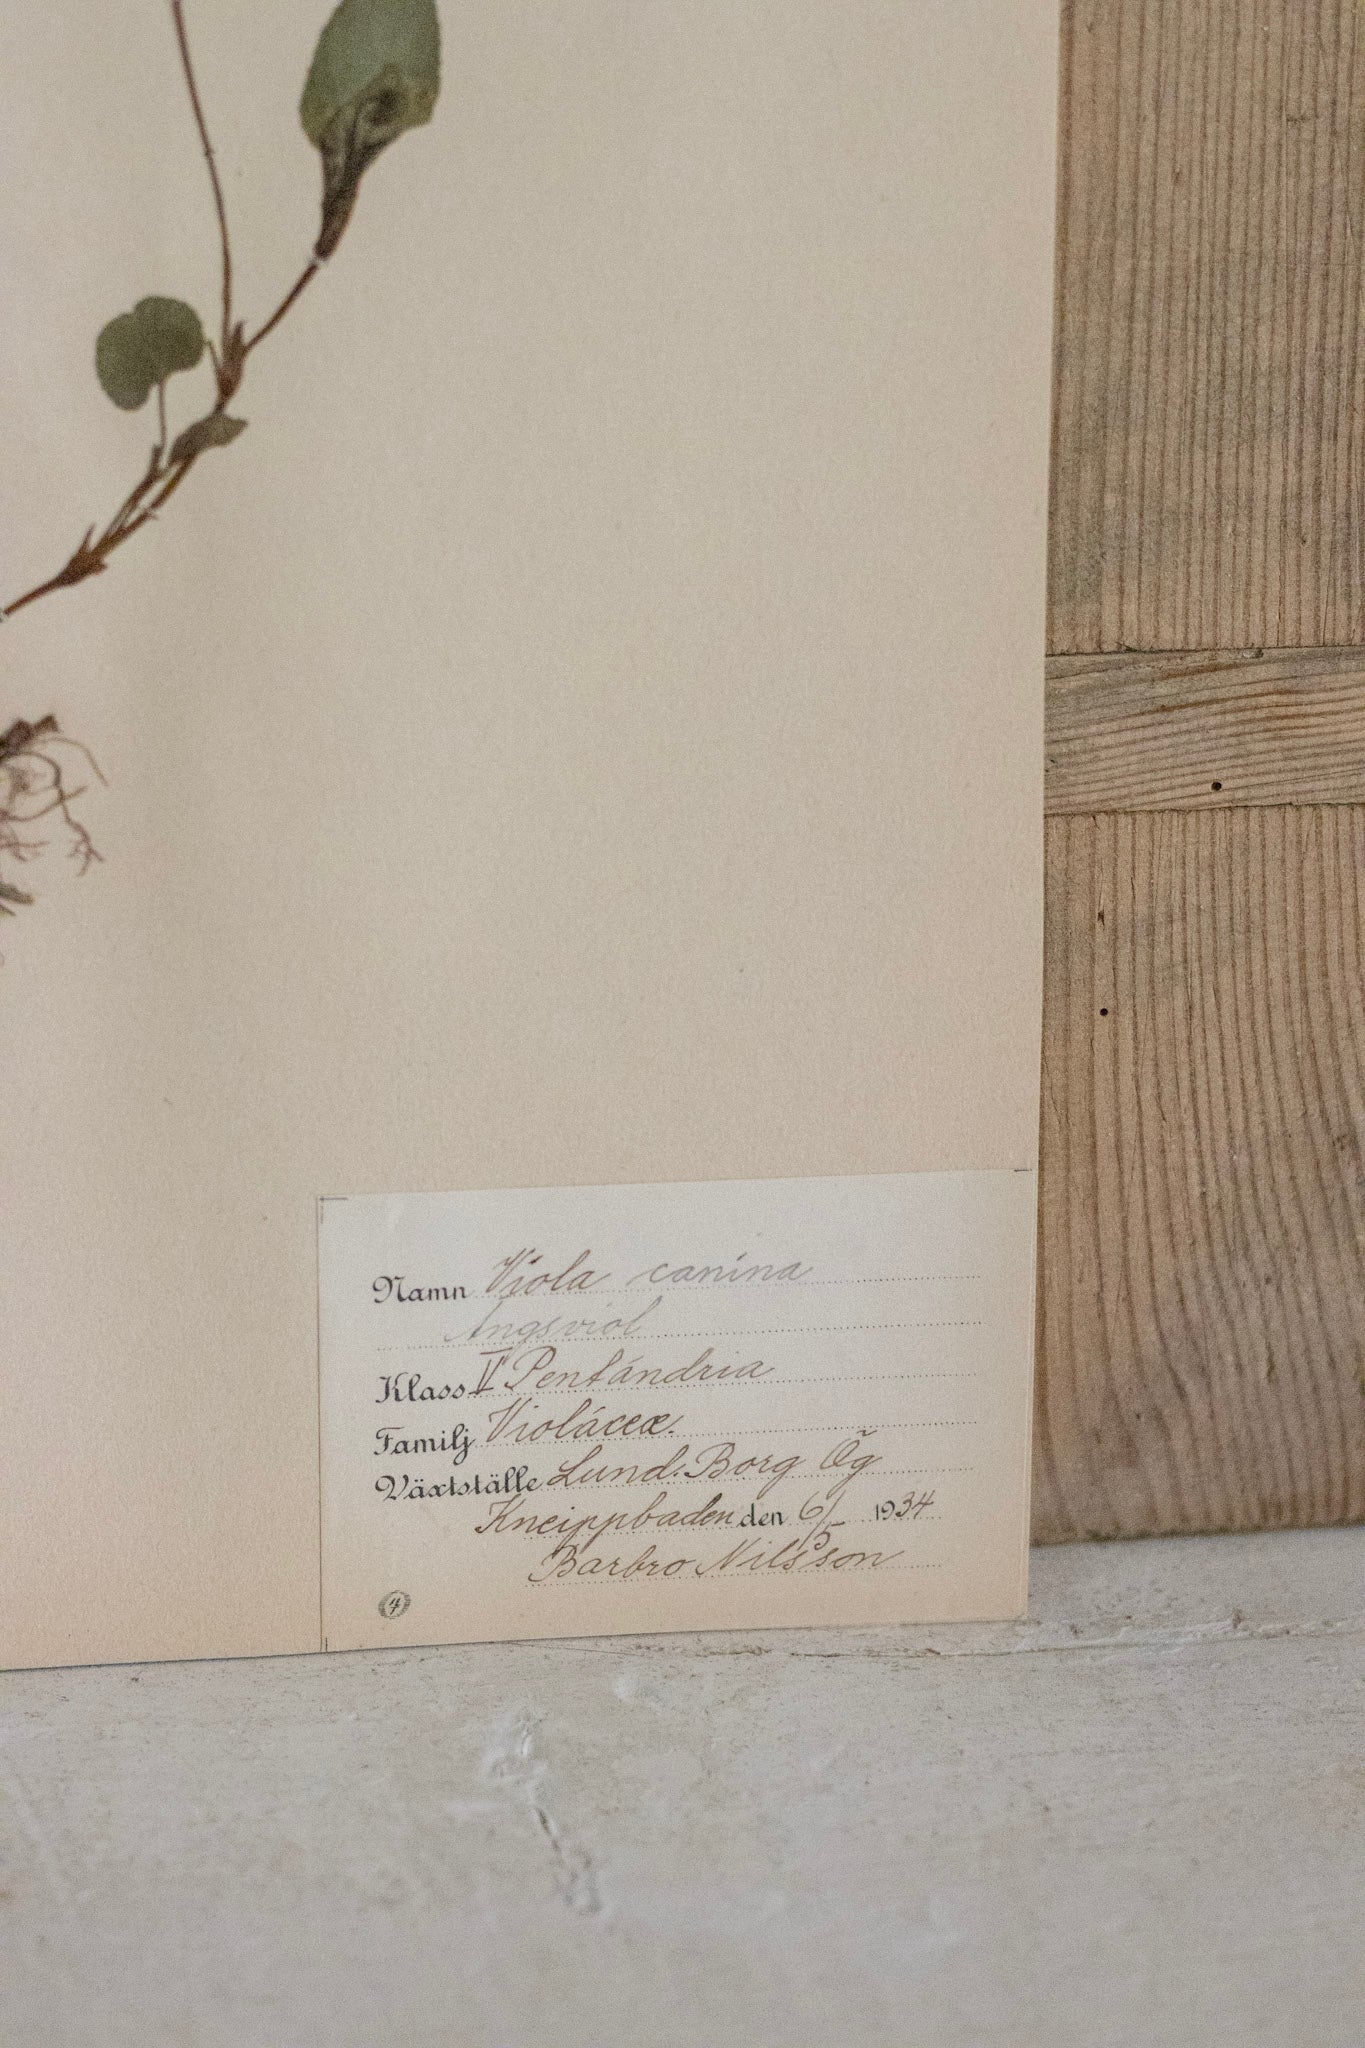 Namn Viola canina
Ängsviol
Klass V Pentándria
Familj Violáceæ.
Växtställe Lund. Borg Õg
Kneippbaden den 6/5 1934
Barbro Nilsson
4